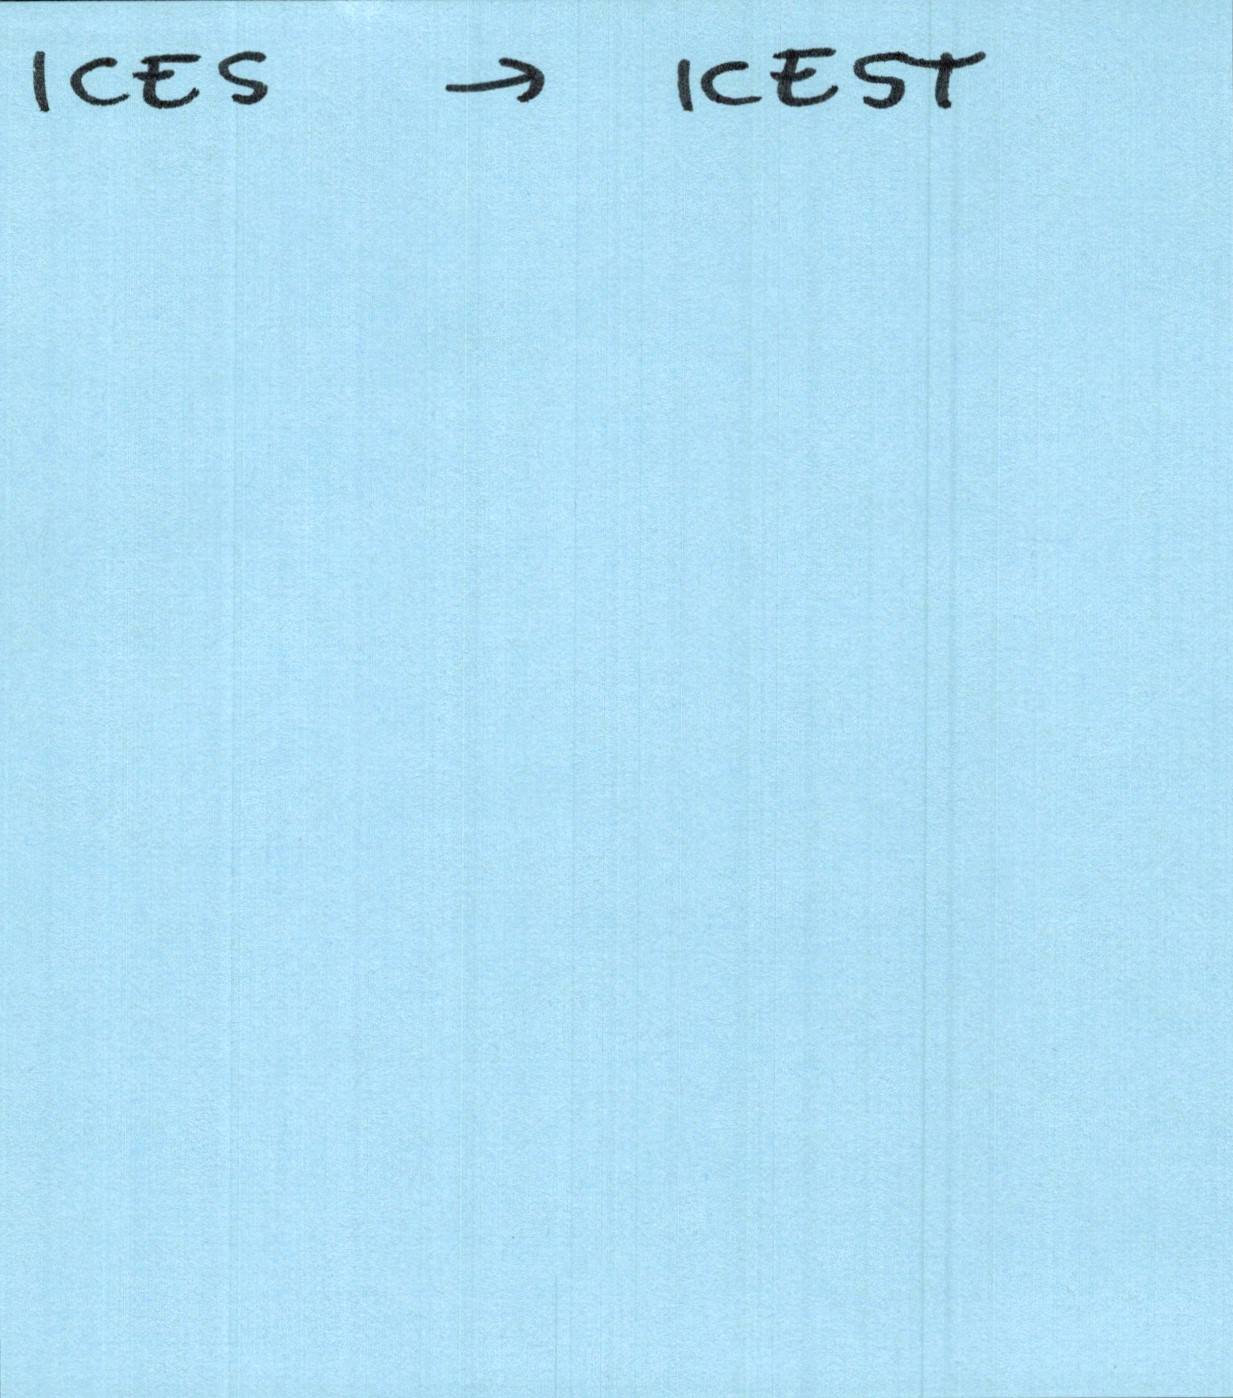 ICES → ICEST